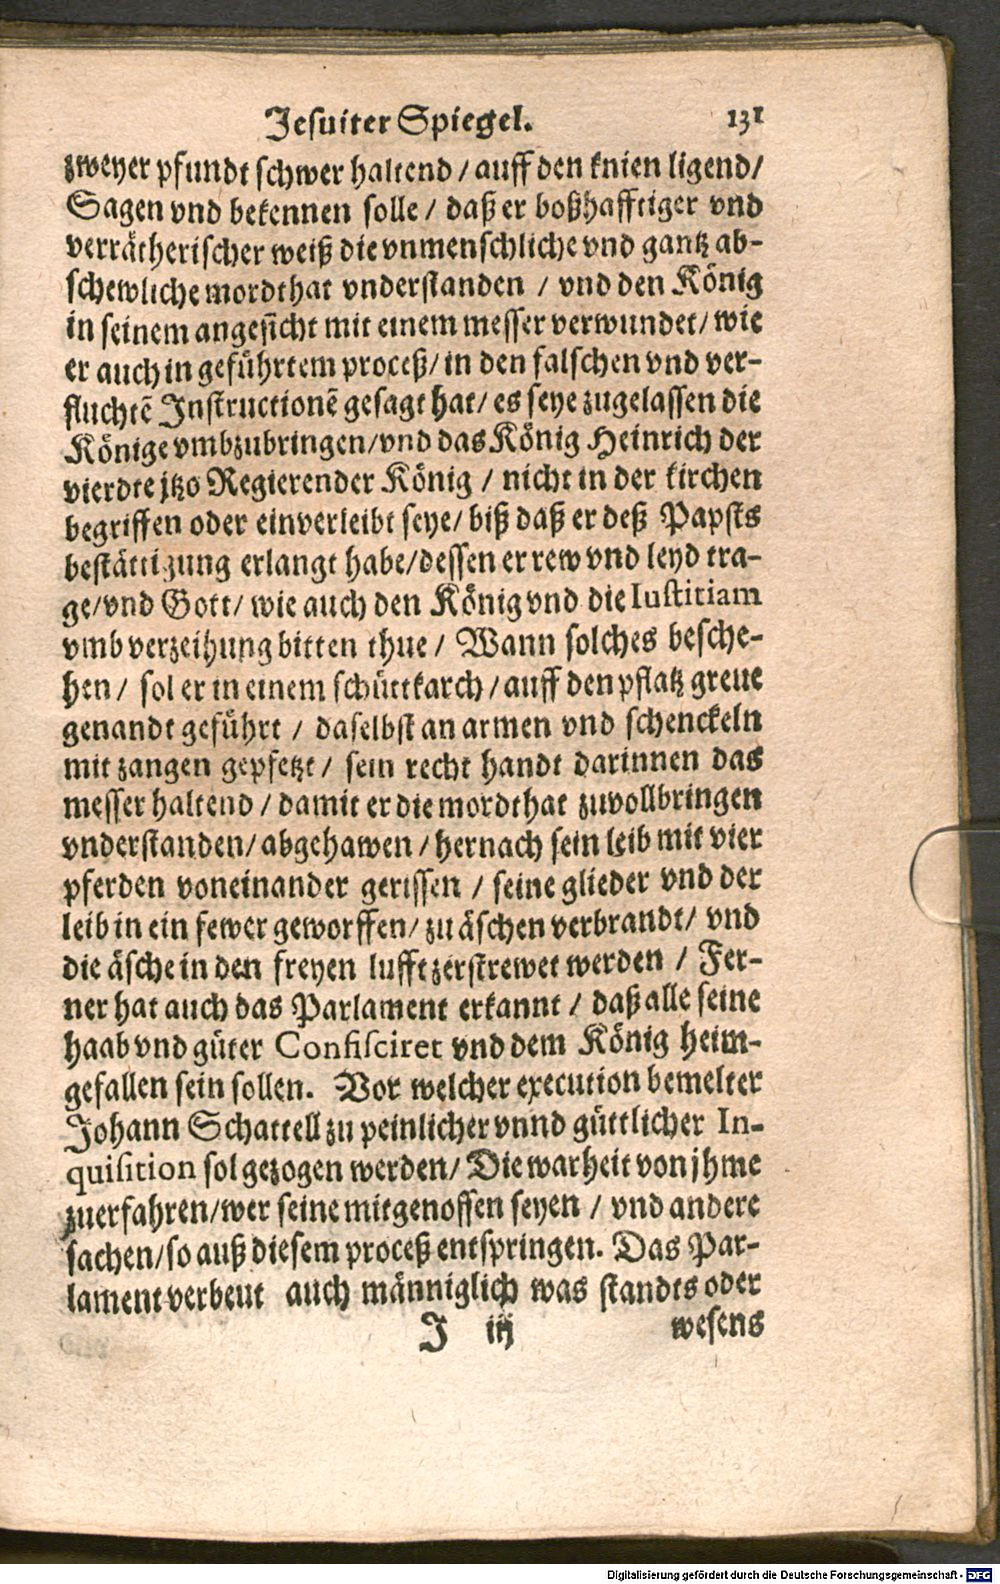 Jesuiter Spiegel. 131
zweyer pfundt schwer haltend / auff den knien ligend/
Sagen vnd bekennen solle / daß er boßhafftiger vnd
verrätherischer weiß die vnmenschliche vnd gantz ab-
schewliche mordthat vnderstanden / vnd den König
in seinem angesicht mit einem messer verwundet/ wie
er auch in geführtem proceß/ in den falschen vnd ver-
fluchtē Instructionē gesagt hat/ es seye zugelassen die
Könige vmbzubringen/vnd das König Heinrich der
vierdte jtzo Regierender König / nicht in der kirchen
begriffen oder einverleibt seye/ biß daß er deß Papsts
bestättigung erlangt habe/dessen er rew vnd leyd tra-
ge/vnd Gott/ wie auch den König vnd die Iustitiam
vmb verzeihung bitten thue / Wann solches besche-
hen / sol er in einem schüttkarch / auff den pflatz greue
genandt geführt / daselbst an armen vnd schenckeln
mit zangen gepfetzt / sein recht handt darinnen das
messer haltend / damit er die mordthat zuvollbringen
vnderstanden/ abgehawen / hernach sein leib mit vier
pferden voneinander gerissen / seine glieder vnd der
leib in ein fewer geworffen/ zu äschen verbrandt/ vnd
die äsche in den freyen lufft zerstrewet werden / Fer-
ner hat auch das Parlament erkannt / daß alle seine
haab vnd güter Confisciret vnd dem König heim-
gefallen sein sollen. Vor welcher execution bemelter
Johann Schattell zu peinlicher vnnd güttlicher In-
quisition sol gezogen werden/ Die warheit von jhme
zuerfahren/wer seine mitgenossen seyen / vnd andere
sachen/so auß diesem proceß entspringen. Das Par-
lament verbeut auch männiglich was standts oder
J iij wesens
Digitalisierung gefördert durch die Deutsche Forschungsgemeinschaft - DFG